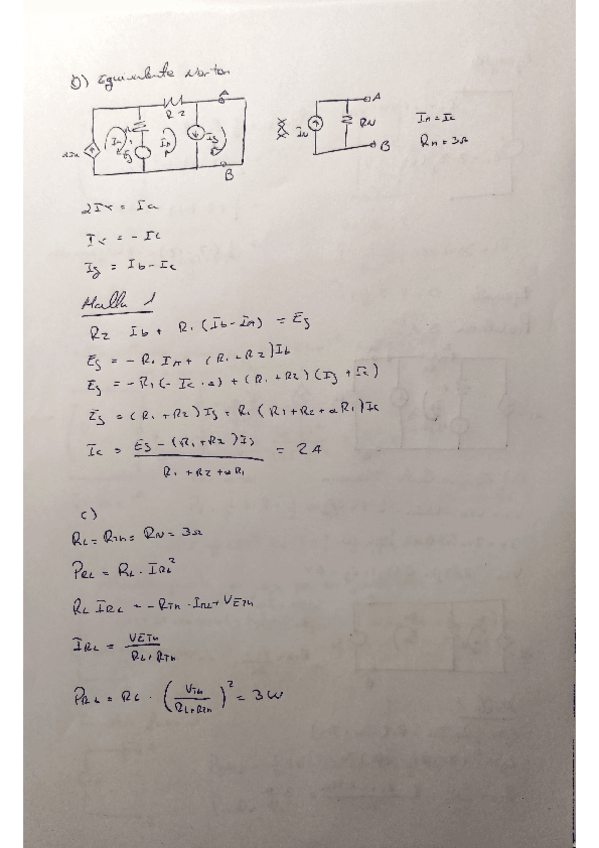 b) Equivalente Norton
R2
A
A
In
RN
In = Ic
Rn = 3Ω
B
B
Ig
2Ix = Ia
Ix = - Ic
Ig = Ib - Ic
Malla 1
R2 Ib + R1 (Ib - Ia) = Eg
Eg = - R1 Ia + (R1 + R2) Ib
Eg = - R1 (- Ic · α) + (R1 + R2) (Ig + Ic)
Eg = (R1 + R2) Ig + R1 (R1 + R2 + αR1) Ic
Ic = Eg - (R1 + R2) Ig / R1 + R2 + αR1 = 2A
c)
RL = RTh = RN = 3Ω
PRL = RL · IRL²
RL IRL = - RTh · IRL + VETh
IRL = VETh / RL + RTh
PRL = RL · (VTh / RL + RTh)² = 3W